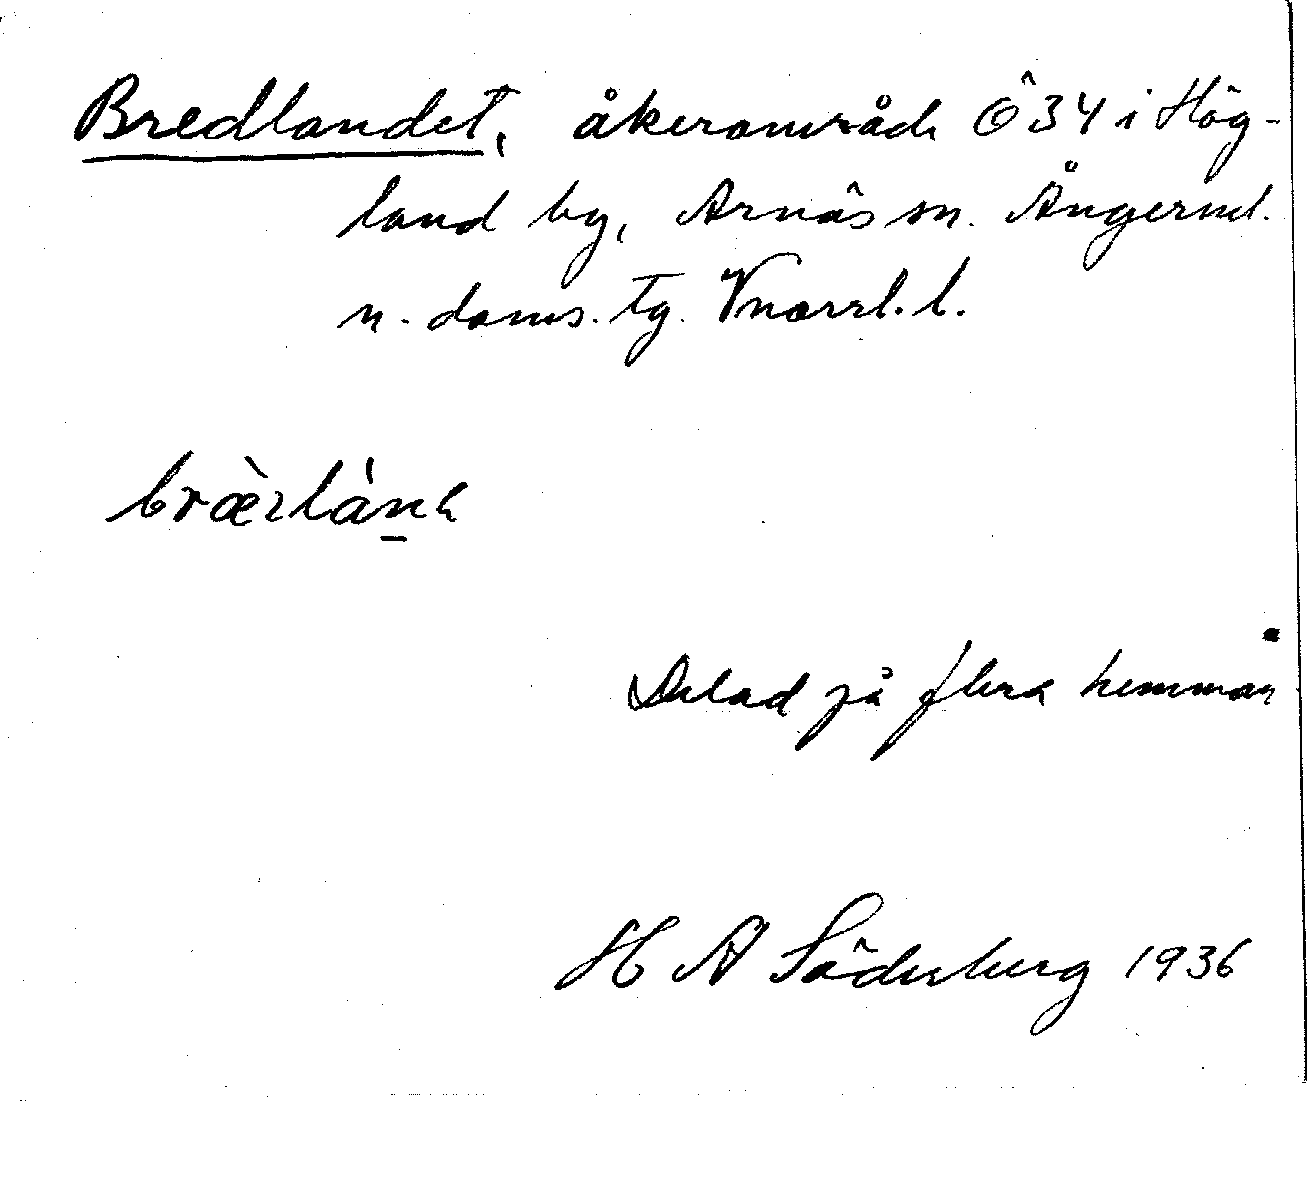 Bredlandet, åkerområde Ö 34 i Hög-
land by, Arnäs sn. Ångerml.
n. doms. tg. Vnorrl. l.
Delad på flera hemman
H A Söderberg 1936